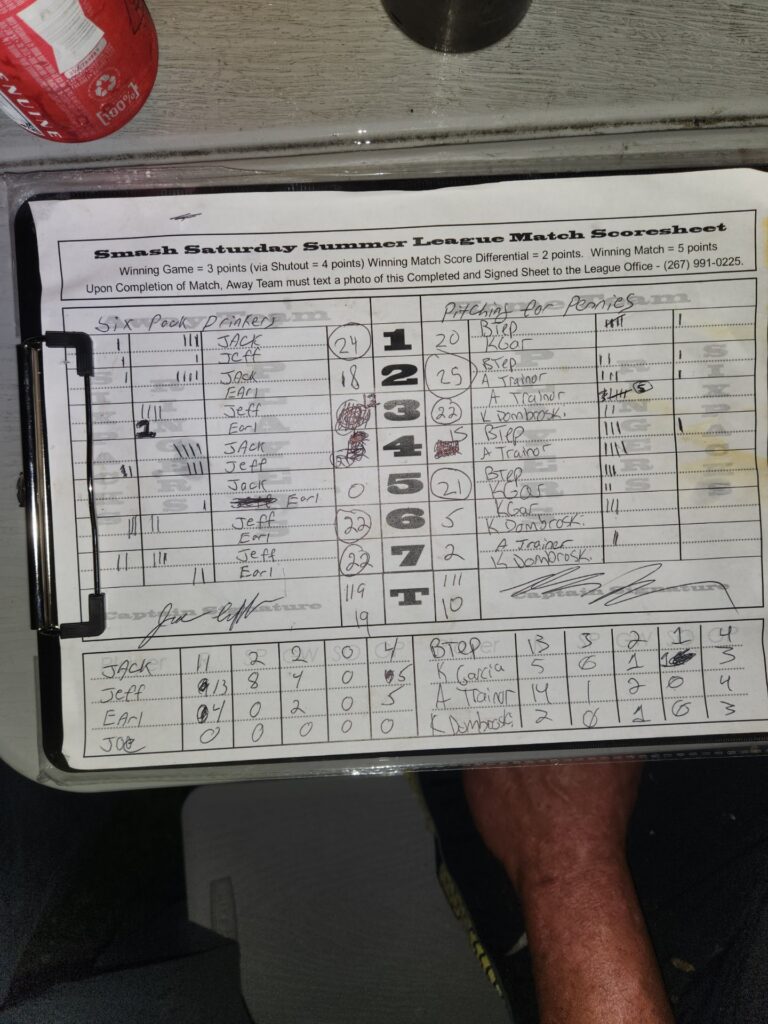 GENUINE
Smash Saturday Summer League Match Scoresheet
Winning Game = 3 points (via Shutout = 4 points) Winning Match Score Differential = 2 points. Winning Match = 5 points
Upon Completion of Match, Away Team must text a photo of this Completed and Signed Sheet to the League Office - (267) 991-0225.
Six Pack Drinkers Pitching for Pennies
JACK 24 1 20 BTep
Jeff KGar
JACK 18 2 25 BTep
EArl A Trainor
Jeff 12 3 22 A Trainor 5
Earl K Dombrosk.
JAck 4 15 BTep
Jeff A Trainor
Jack 0 5 21 BTep
Earl KGar
Jeff 22 6 5 KGar
Earl K Dombrosk.
Jeff 22 7 2 A Trainer
Earl K Dombrosk.
119 T 111
Captain Signature 19 10 Captain Signature
JACK 11 2 2 0 4 BTep 13 3 2 1 4
Jeff 13 8 4 0 5 K Garcia 5 0 1 3
EArl 4 0 2 0 5 A Trainor 14 1 2 0 4
JOE 0 0 0 0 0 K Dombrosk. 2 0 1 0 3